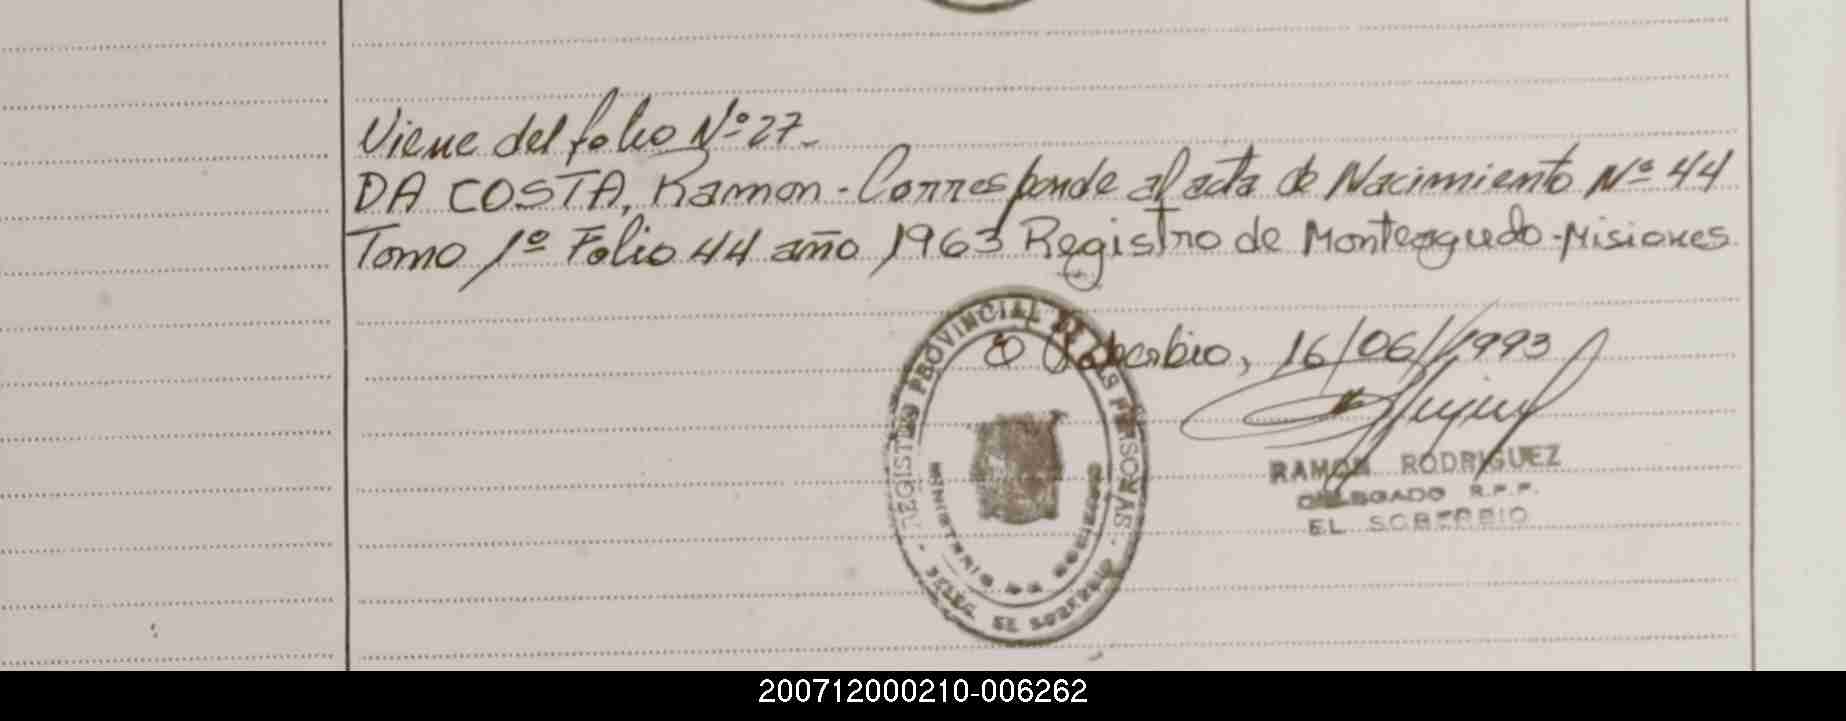 Viene del folio Nº 27.-
DA COSTA, Ramon - Corresponde al acta de Nacimiento Nº 44
Tomo 1º Folio 44 año 1963 Registro de Monteagudo - Misiones.
Soberbio, 16/06/1993
REGISTRO PROVINCIAL DE LAS PERSONAS
MINISTERIO DE GOBIERNO
DELEG. EL SOBERBIO
RAMON RODRIGUEZ
DELEGADO R.P.P.
EL SOBERBIO
200712000210-006262